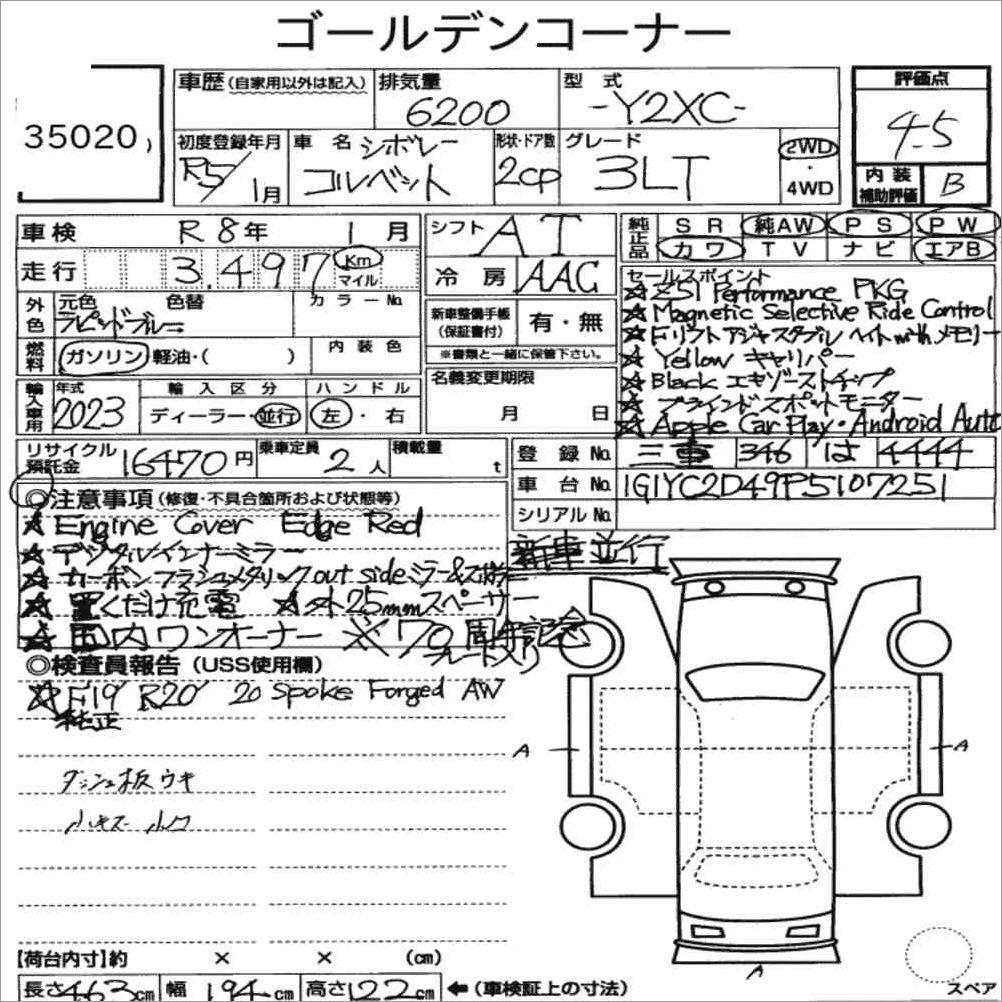 ゴールデンコーナー
35020
車歴(自家用以外は記入) 排気量 6200 型式 -Y2XC- 評価点 4.5
初度登録年月 R5/1月 車名 シボレー コルベット 形状・ドア数 2cp グレード 3LT 2WD・4WD 内装補助評価 B
車検 R8年 1月 シフト AT 純正品 SR 純AW PS PW
カワ TV ナビ エアB
走行 3,497 Km マイル 冷房 AAC
外色 元色 色替 ラピッドブルー カラーNo.
燃料 ガソリン 軽油・( ) 内装色
新車整備手帳(保証書付) 有・無
※書類と一緒に保管下さい。
輸入車用 年式 2023 輸入区分 ディーラー・並行 ハンドル 左・右
名義変更期限 月 日
セールスポイント
☆Z51 Performance PKG
☆Magnetic Selective Ride Control
☆Fリフト アジャスタブル ヘイト withメモリー
☆Yellow キャリパー
☆Black エキゾーストチップ
☆ブラインドスポットモニター
☆Apple Car Play・Android Auto
リサイクル預託金 16470円 乗車定員 2人 積載量 t
登録No. 三重 346 は 4444
車台No. 1G1YC2D49P5107251
シリアルNo.
◎注意事項(修復・不具合箇所および状態等)
☆Engine Cover Edge Red
☆デジタルインナーミラー
☆カーボンフラッシュメタリックout sideミラー&
☆置くだけ充電 ☆外25mmスペーサー
☆国内ワンオーナー ※70周年記念
プレート入り
新車並行
◎検査員報告(USS使用欄)
☆F19" R20" 20 Spoke Forged AW
純正
ダッシュ板ウキ
小キズ 小凹
A
A
A
スペア
【荷台内寸】約 × × (cm)
長さ463cm 幅194cm 高さ122cm ←(車検証上の寸法)